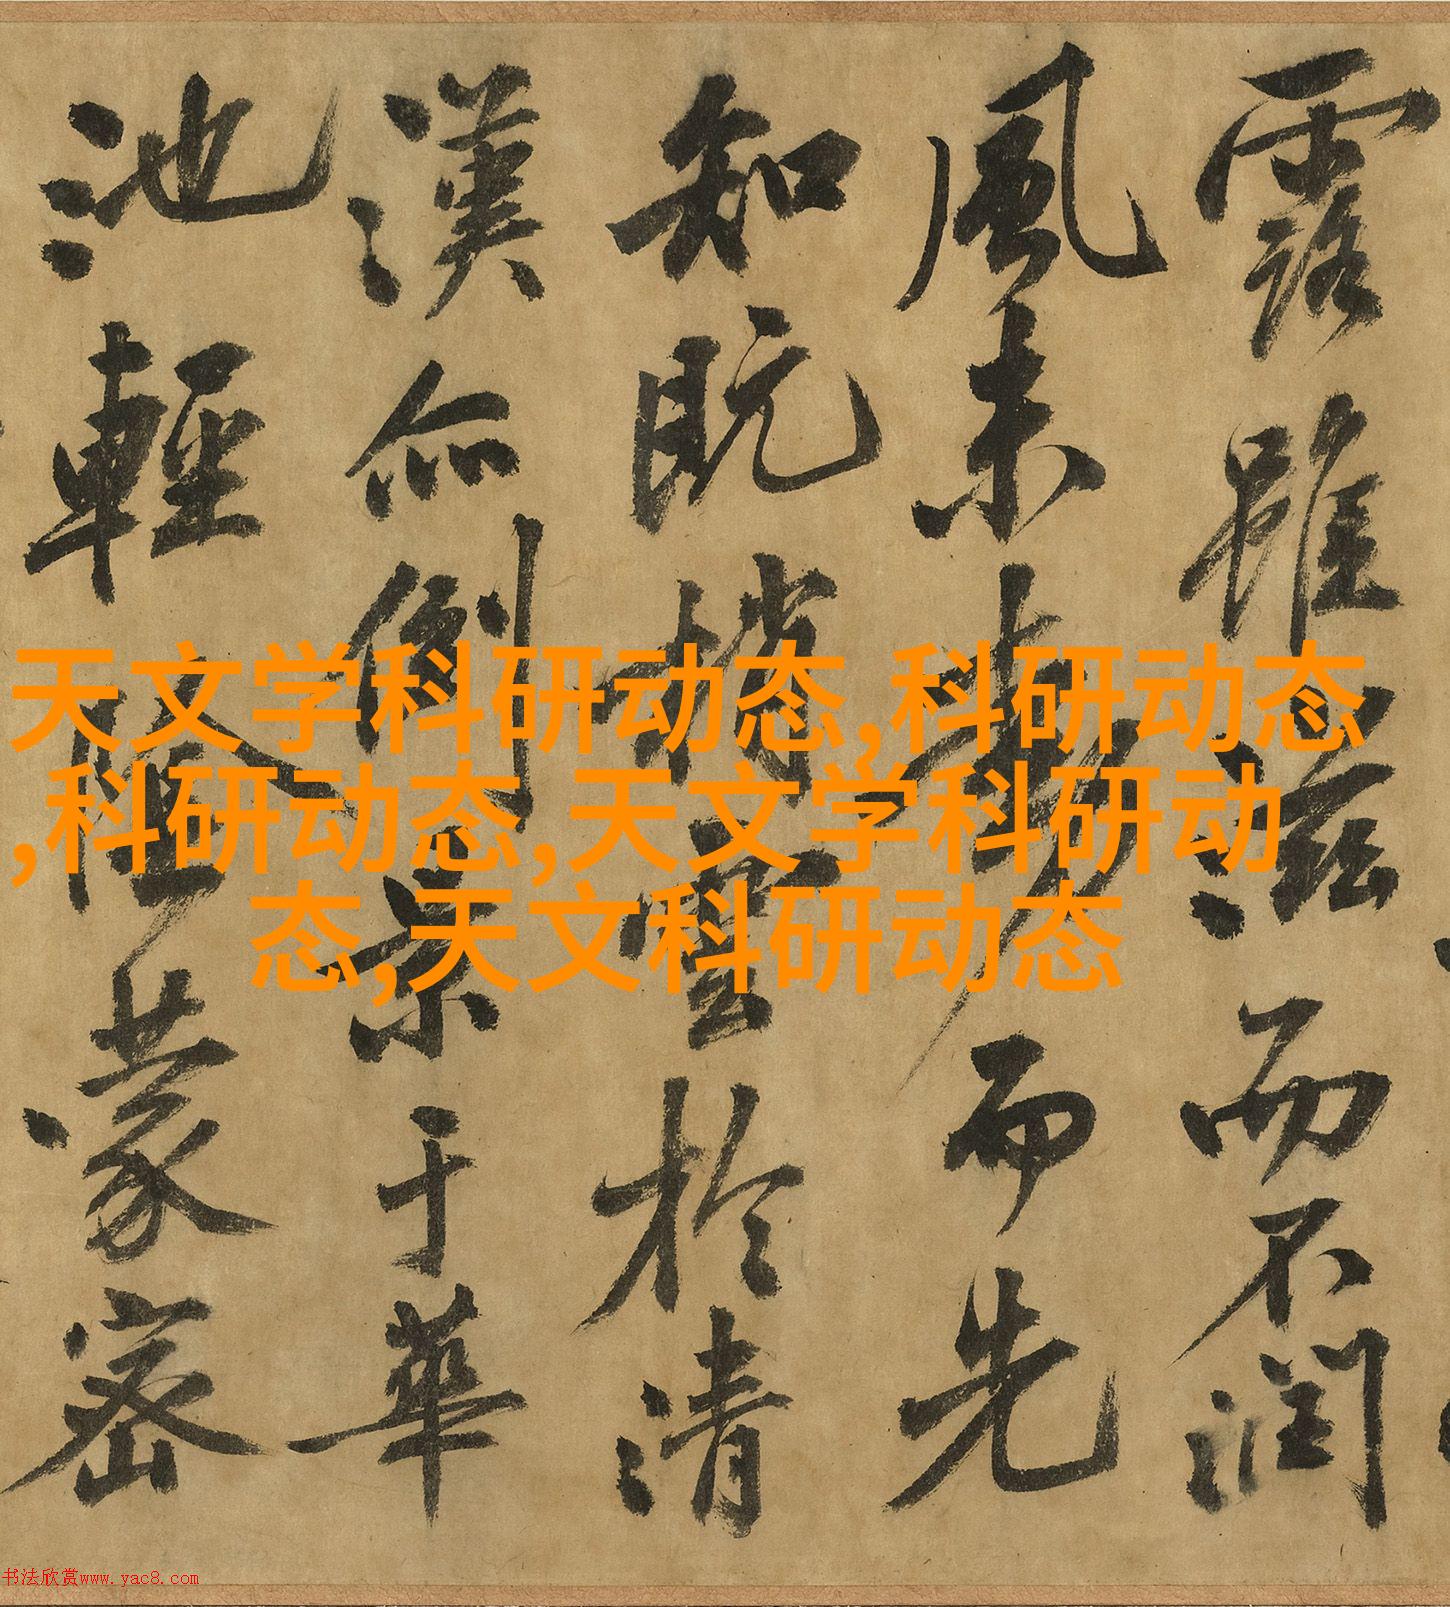 露雖滋而不潤
風未動而先
知既梢雲於清
漢亦倒景于華
池輕陰蒙密
天文学科研动态,科研动态
,科研动态,天文学科研动
态,天文科研动态
书法欣赏www.yac8.com